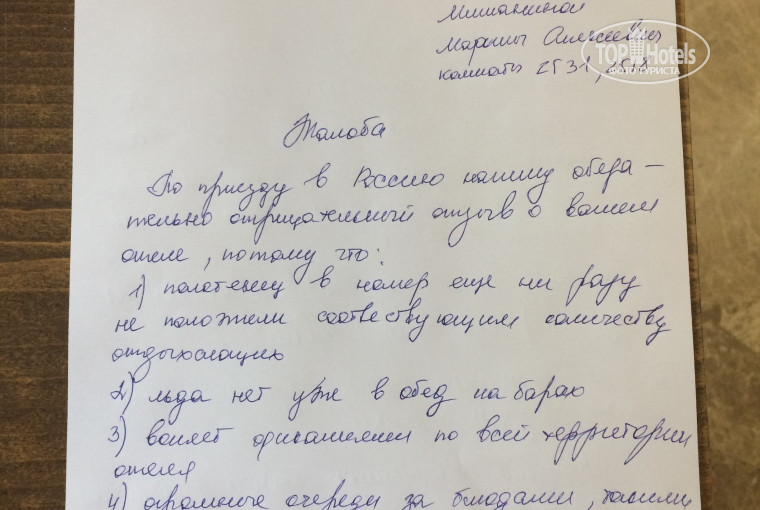 Марины Алексеевны
комнаты 2531, 2518
TOP Hotels
ФОТО ТУРИСТА
Жалоба
По приезду в Россию напишу обяза-
тельно отрицательный отзыв о вашем
отеле, потому что:
1) полотенец в номер еще ни разу
не положили соотвествующим количеству
отдыхающих
2) льда нет уже в обед на барах
3) воняет фикалиями по всей территории
отеля
4) огромные очереди за блюдами,